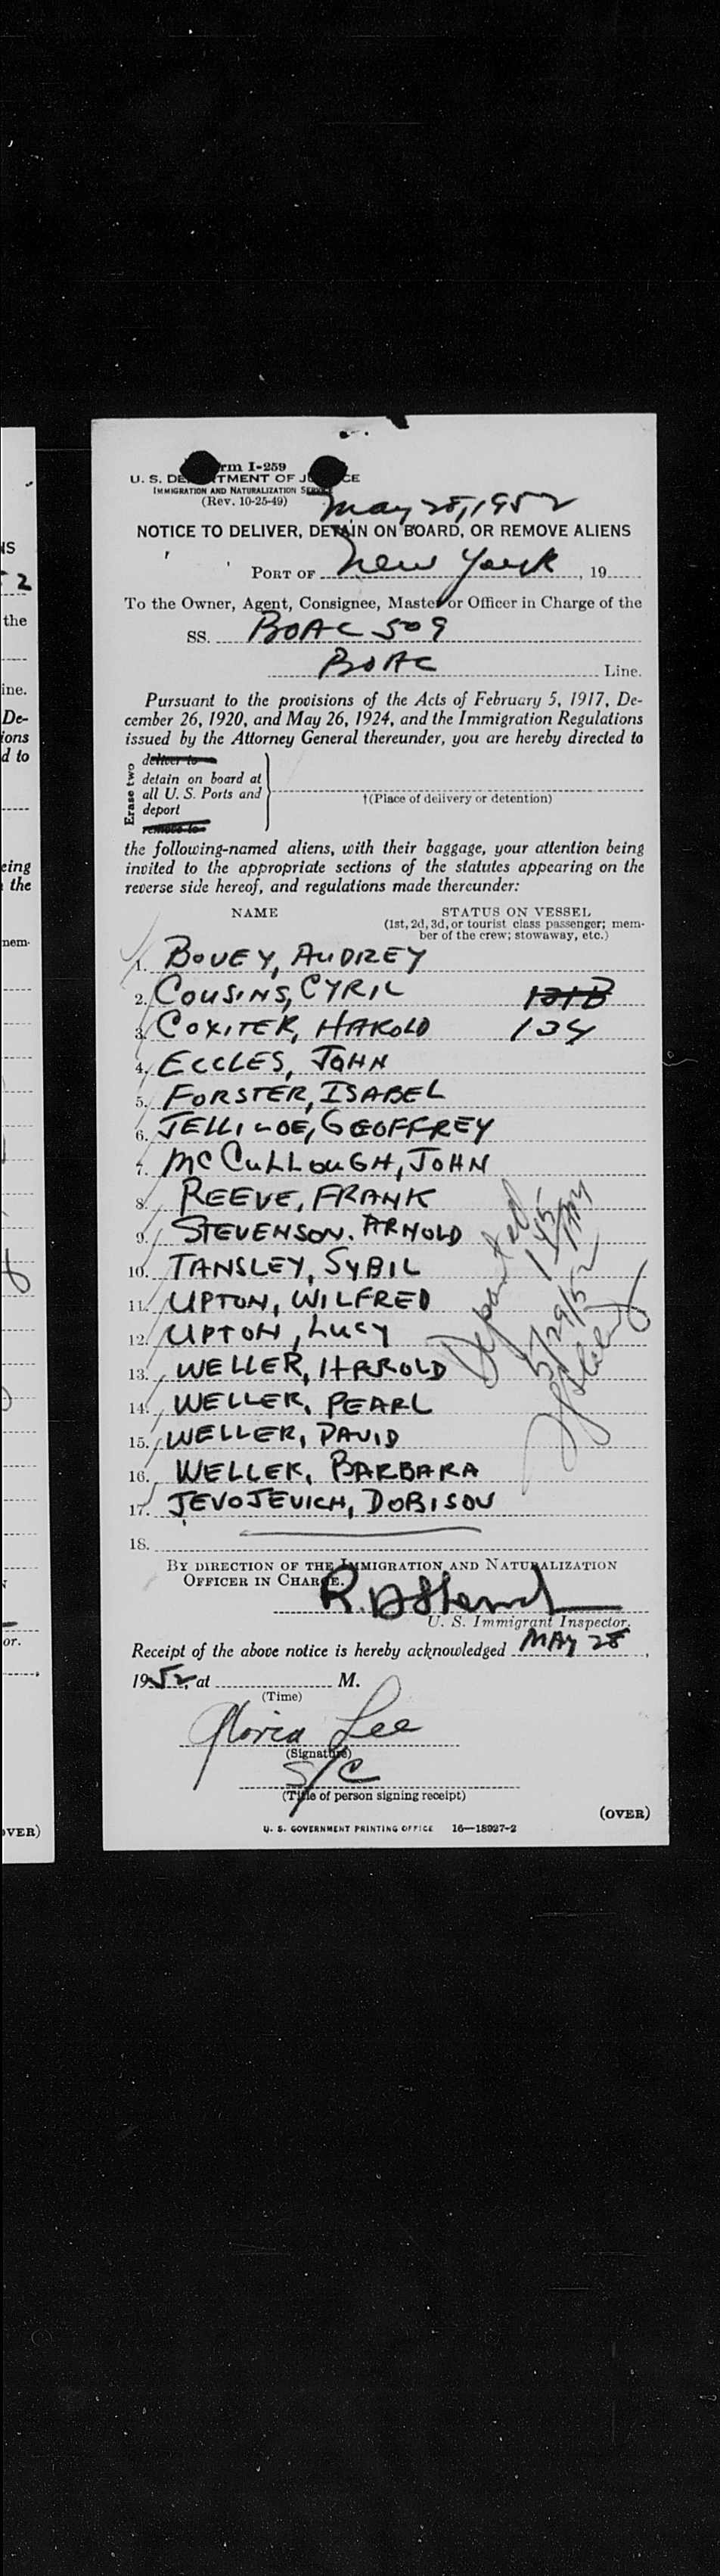 Form I-259
U. S. DEPARTMENT OF JUSTICE
IMMIGRATION AND NATURALIZATION SERVICE
(Rev. 10-25-49)
May 28, 1952
NOTICE TO DELIVER, DETAIN ON BOARD, OR REMOVE ALIENS
PORT OF New York, 19
To the Owner, Agent, Consignee, Master or Officer in Charge of the
SS. BOAC 509
BOAC Line.
Pursuant to the provisions of the Acts of February 5, 1917, De-
cember 26, 1920, and May 26, 1924, and the Immigration Regulations
issued by the Attorney General thereunder, you are hereby directed to
Erase two
deliver to
detain on board at
all U. S. Ports and
deport
remove to
†(Place of delivery or detention)
the following-named aliens, with their baggage, your attention being
invited to the appropriate sections of the statutes appearing on the
reverse side hereof, and regulations made thereunder:
NAME STATUS ON VESSEL
(1st, 2d, 3d, or tourist class passenger; mem-
ber of the crew; stowaway, etc.)
1. BOVEY, AUDREY
2. COUSINS, CYRIL 101B
3. COXITER, HAROLD 134
4. ECCLES, JOHN
5. FORSTER, ISABEL
6. JELLICOE, GEOFFREY
7. MCCULLOUGH, JOHN
8. REEVE, FRANK
9. STEVENSON. ARNOLD
10. TANSLEY, SYBIL
11. UPTON, WILFRED
12. UPTON, LUCY
13. WELLER, HAROLD
14. WELLER, PEARL
15. WELLER, DAVID
16. WELLER, BARBARA
17. JEVOJEVICH, DOBISOV
18.
Departed
145 PM
5/29/52
BY DIRECTION OF THE IMMIGRATION AND NATURALIZATION
OFFICER IN CHARGE.
U. S. Immigrant Inspector.
Receipt of the above notice is hereby acknowledged MAY 28,
1952, at M.
(Time)
Gloria Lee
(Signature)
S/C
(Title of person signing receipt)
(OVER)
U. S. GOVERNMENT PRINTING OFFICE 16—18927-2